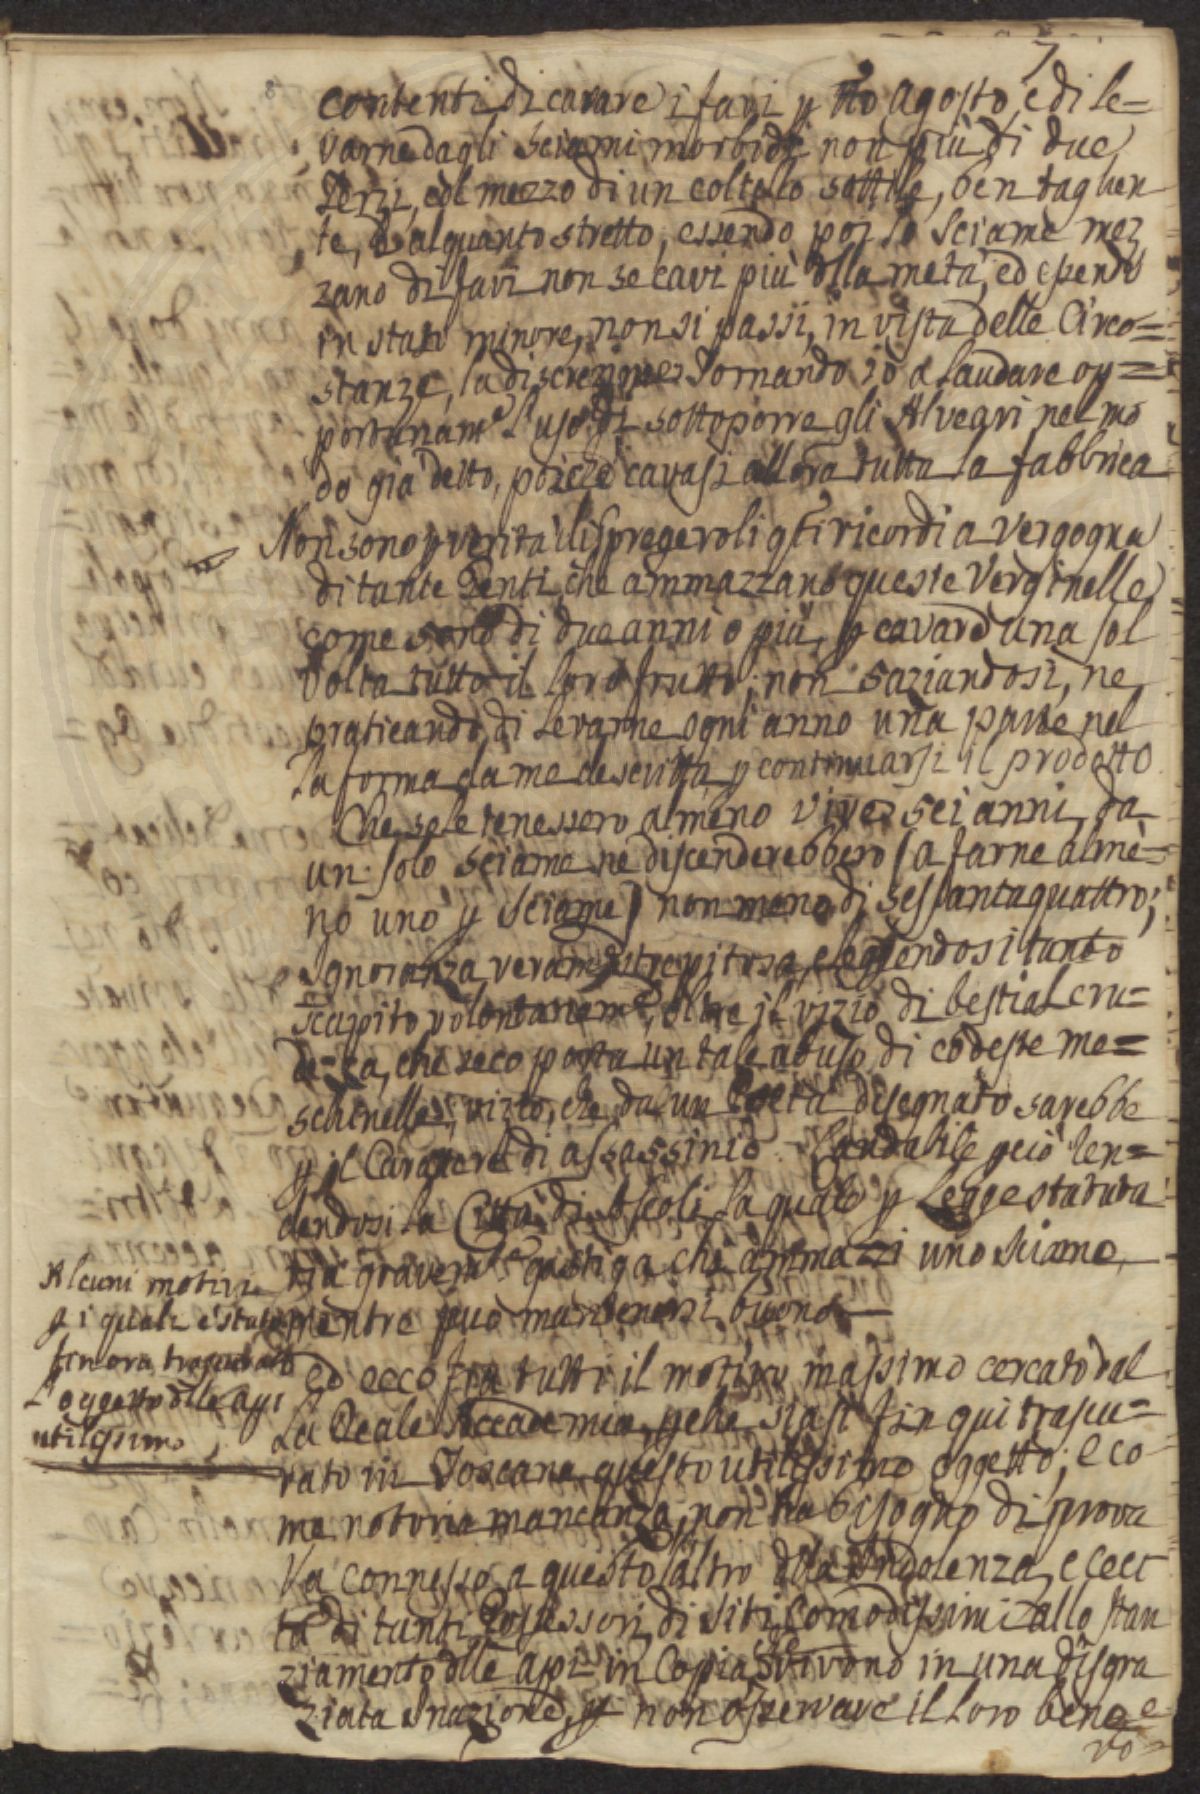 7
contenti di cavare i favi p tto Agosto, e di le=
varne dagli Sciami morbidi non più di due
Terzi, col mezzo di un coltello sottile, ben taglien
te, ed alquanto stretto; essendo poi lo Sciame mez
zano di favi non se cavi più dlla metà, ed essendo
in stato minore, non si passi, in vista delle Circo=
stanze, la discrezione. Tornando io a laudare op=
portunamte l'uso di sottoporre gli Alveari nel mo
do già detto, poichè cavasi allora tutta la fabbrica
Non sono p verità dispregevoli qti ricordi a vergogna
di tante Genti, che ammazzano queste Verginelle
come sono di due anni o più, p cavare una sol
volta tutto il loro frutto; non saziandosi, ne
praticando di levarne ogni anno una parte nel
la forma da me descritta p continuarsi il prodotto
Che se le tenessero almeno vive sei anni, da
un solo sciame ne discenderebbero (a farne alme=
no uno p Sciame) non meno di sessantaquattro;
Ignoranza veramte strepitosa, eleggendosi tanto
scapito volontariamte, oltre il vizio di bestial cru=
dezza, che seco porta un tale abuso di codeste me=
schinelle; vizio, che da un Poeta disegnato sarebbe
p il Carattere di assassinio. Laudabile pciò ren=
dendosi la Città di Ascoli la quale p Legge statuta
ria gravemte gastiga chi ammazzi uno sciame,
mentre può mantenersi buono.
Alcuni motivi
p i quali è stato
finora trascurato
l'oggetto dlle api
utilissimo
Ed ecco fra tutti il motivo massimo cercato dal
la Reale Accademia, pchè siasi fin qui trascu=
rato in Toscana questo utilissimo oggetto; e co
me notoria mancanza, non ha bisogno di prova
Va connesso a questo l'altro dlla Indolenza, e ceci
tà di tanti Possessori di siti comodissimi allo stan
ziamento dlle api in Copia, che vivono in una disgra
ziata inazione, p non osservare il loro bene
vo=